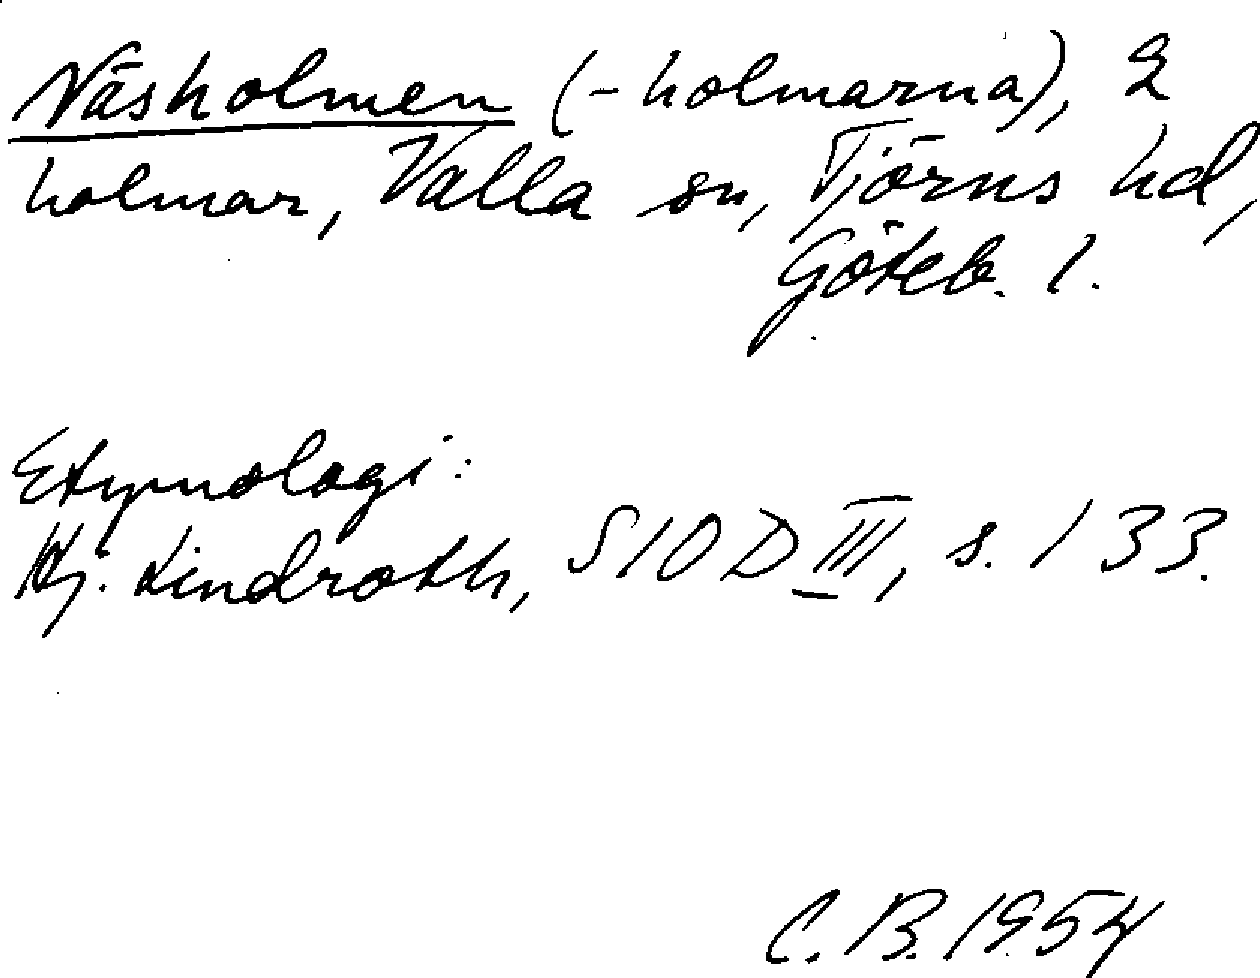 Näsholmen (-holmarna), 2
holmar, Valla sn, Tjörns hd,
Göteb. l.
Etymologi:
Hj. Lindroth, SIOD III, s. 133.
C.B. 1954